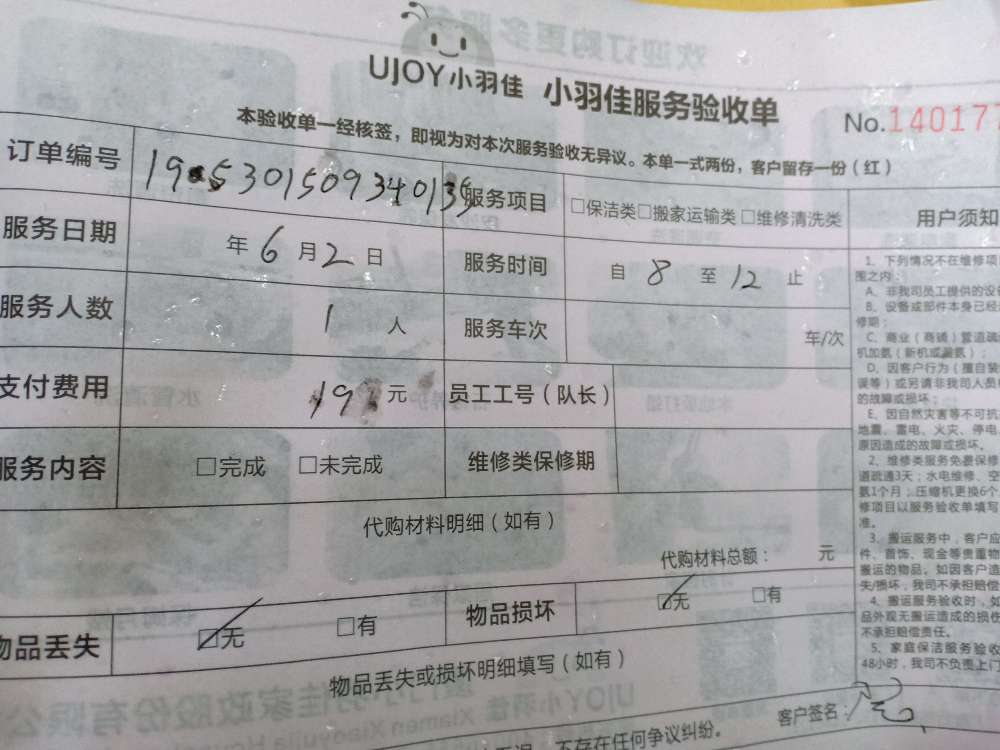 UJOY小羽佳 小羽佳服务验收单
No.140177
本验收单一经核签，即视为对本次服务验收无异议。本单一式两份，客户留存一份（红）
订单编号 服务项目 □保洁类□搬家运输类□维修清洗类 用户须知
服务日期 年6月2日 服务时间 自8至12止
服务人数 1人 服务车次 车/次
支付费用 元 员工工号（队长）
服务内容 □完成 □未完成 维修类保修期
代购材料明细（如有）
代购材料总额： 元
物品丢失 ☑无 □有 物品损坏 ☑无 □有
物品丢失或损坏明细填写（如有）
客户签名：
不存在任何争议纠纷。
1、下列情况不在维修项
围之内：
A、非我司员工提供的设
B、设备或部件本身已经
修期；
C、商业（商铺）管道疏
机加氨（新机或漏氨）；
D、因客户行为（擅自装
误等）或另请非我司人员
的故障或损坏；
E、因自然灾害等不可抗
地震、雷电、火灾、停电
原因造成的故障或损坏。
2、维修类服务免费保修
道疏通3天；水电维修、空
氨1个月；压缩机更换6个
修项目以服务验收单填写
准。
3、搬运服务中，客户应
件、首饰、现金等贵重物
搬运的物品。如因客户造
失/损坏，我司不承担赔偿
4、搬运服务验收时，如
品外观无搬运造成的损伤
不承担赔偿责任。
5、家庭保洁服务验收
48小时，我司不负责上门